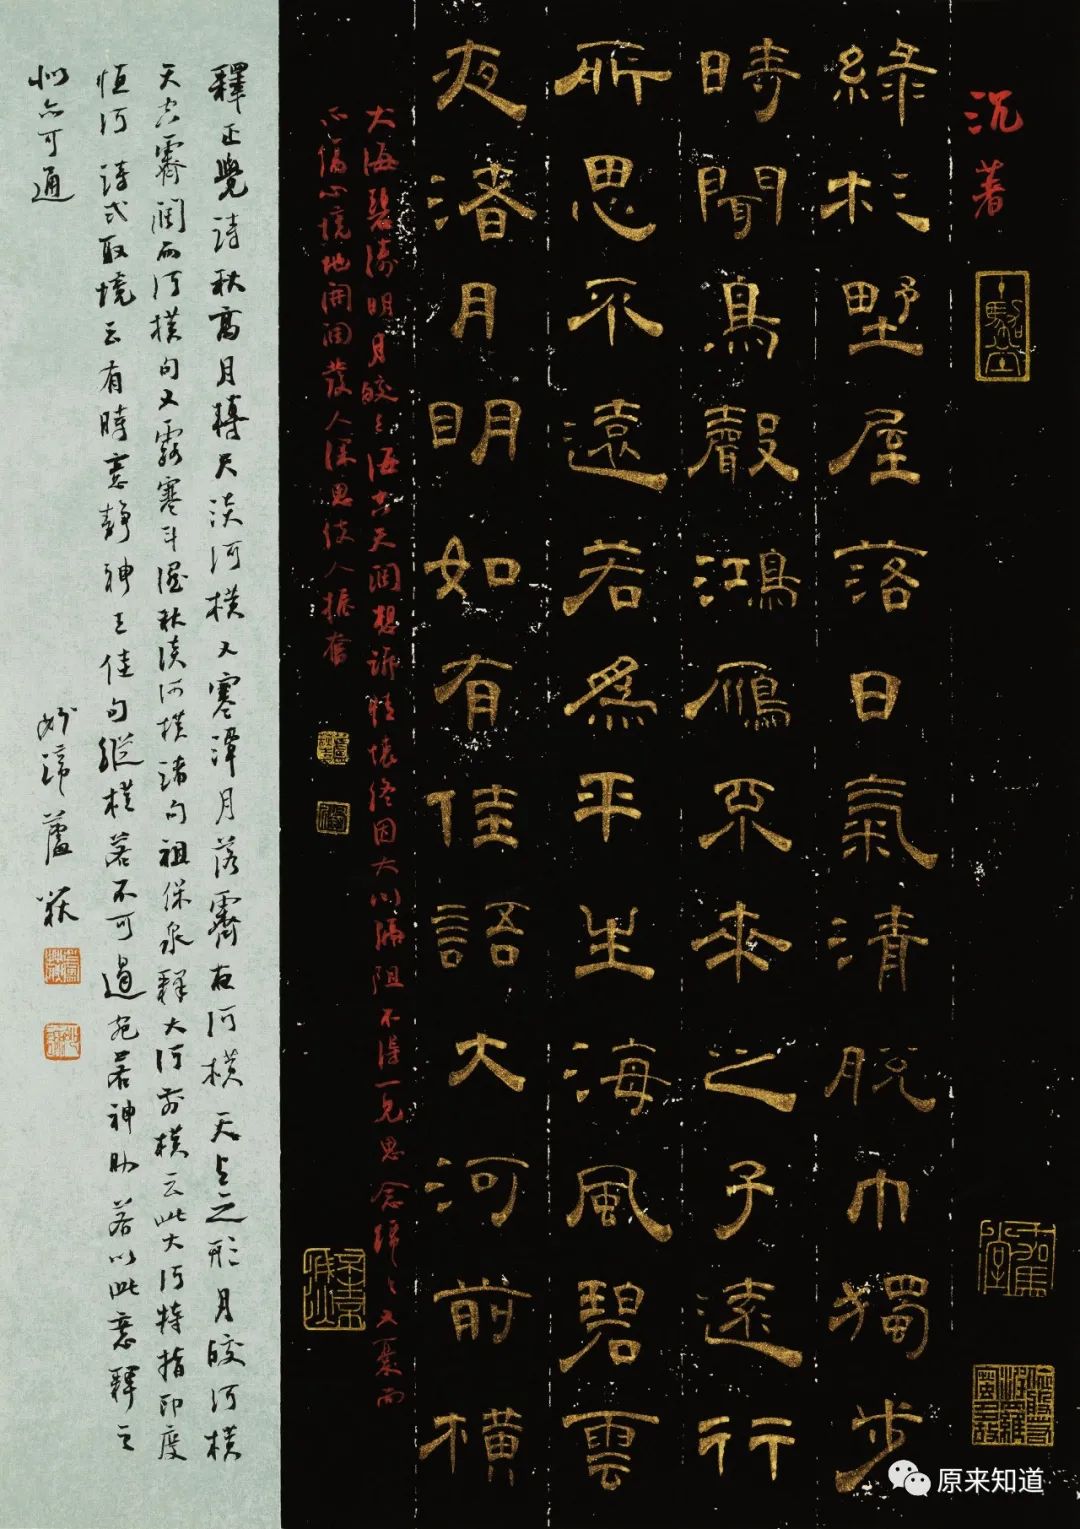 沉著
綠杉野屋落日氣清脫巾獨步
時聞鳥聲鴻雁不來之子遠行
所思不遠若為平生海風碧雲
夜渚月明如有佳語大河前橫
大海碧濤明月皎之海吉天闊想訴情懷終因大川隔阻不得一見思念綿之又哀而
不傷心境地開闊發人深思使人振奮
釋正覺詩秋高月轉天淡河橫又寒潭月落霽夜河橫天上之形月皎河橫
天空霽闊而河橫句又露寒斗濕秋淡河橫諸句祖保泉釋大河前橫云此大河特指印度
恒河詩式取境云有時意靜神王佳句縱橫若不可遏宛若神助若以此意釋之
似亦可通
妙諦蘆獃
原来知道